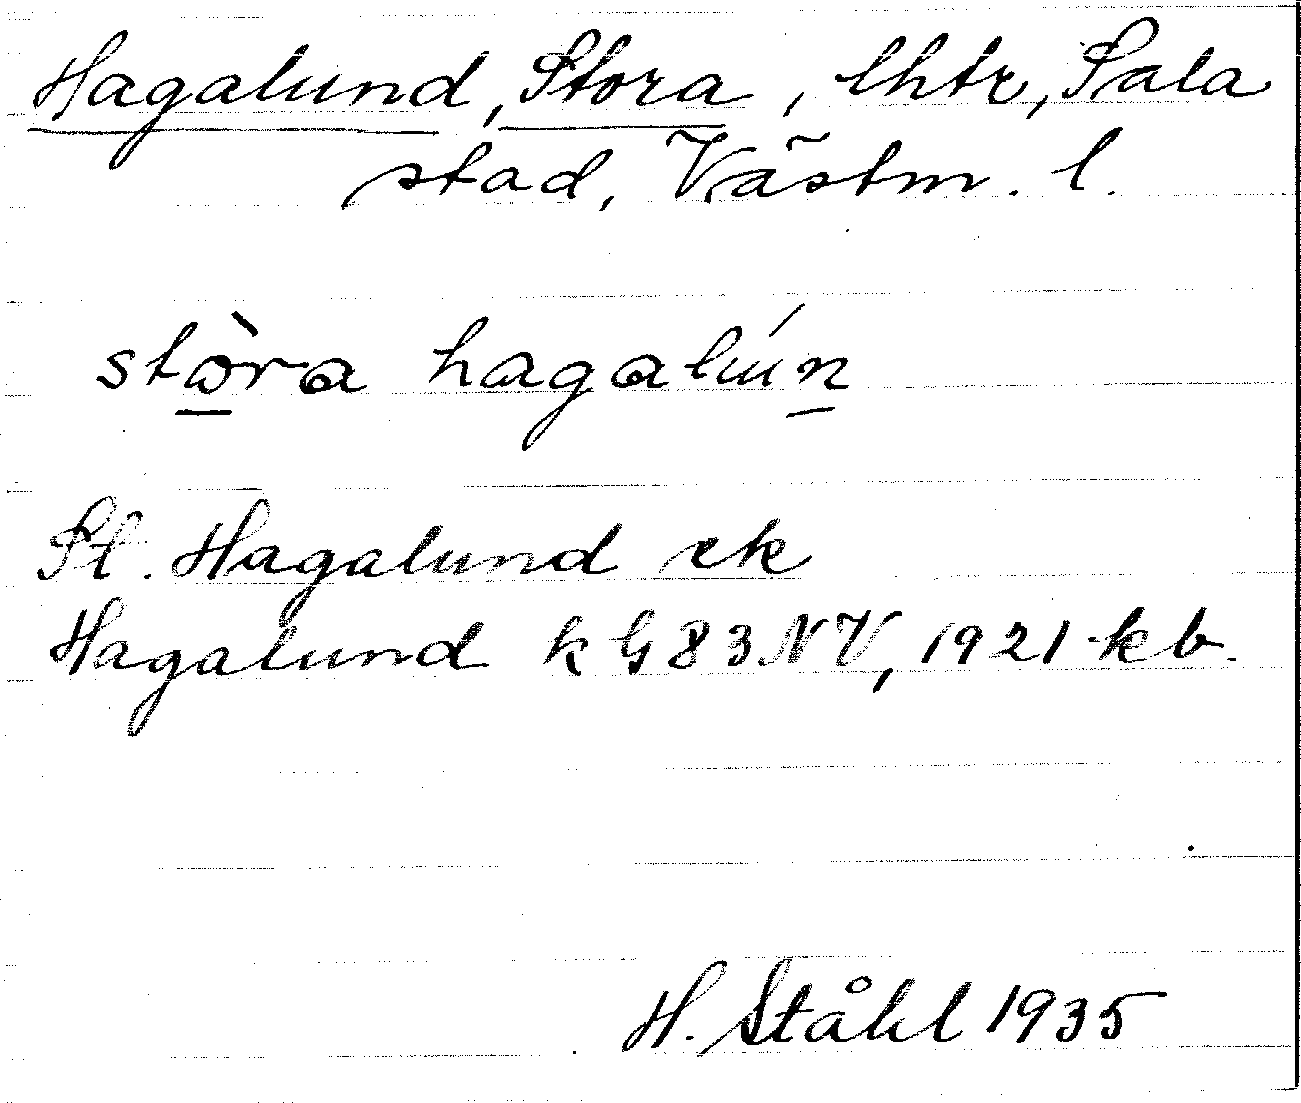 Hagalund, Stora, lhtr, Sala
stad, Västm. l.
stòra hagalún
St. Hagalund ek
Hagalund k G 83 NV, 1921 kb.
H. Ståhl 1935